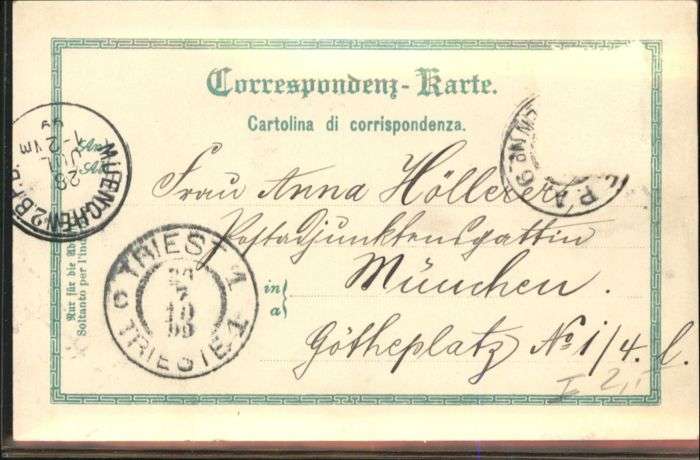 Correspondenz-Karte.
Cartolina di corrispondenza.
Frau Anna Höllerer
Postadjunktensgattin
in
a
München.
Götheplatz No 1/4. l.
Nur für die
Soltanto per l'
MUENCHEN 2.B.P.
28
JUL
1-2 VM
99
TRIEST 1
TRIESTE 1
C
P.A.